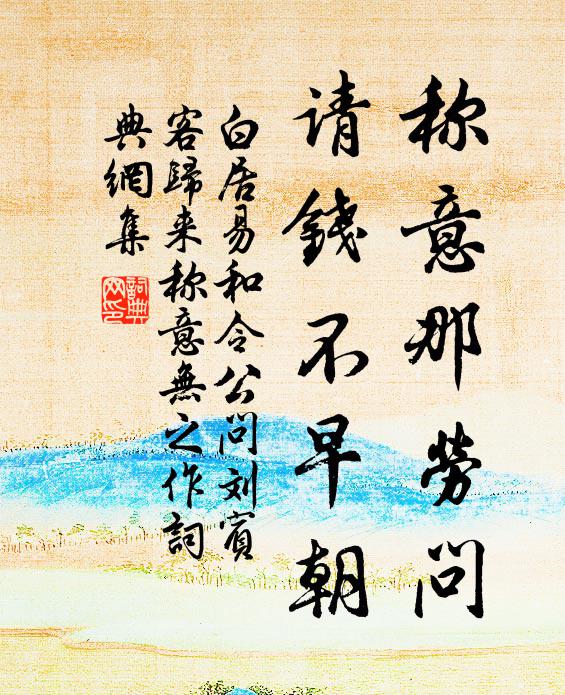 称意那勞問
请錢不早朝
白居易和令公問刘賓
客歸来称意無之作詞
典網集
詞典
网印